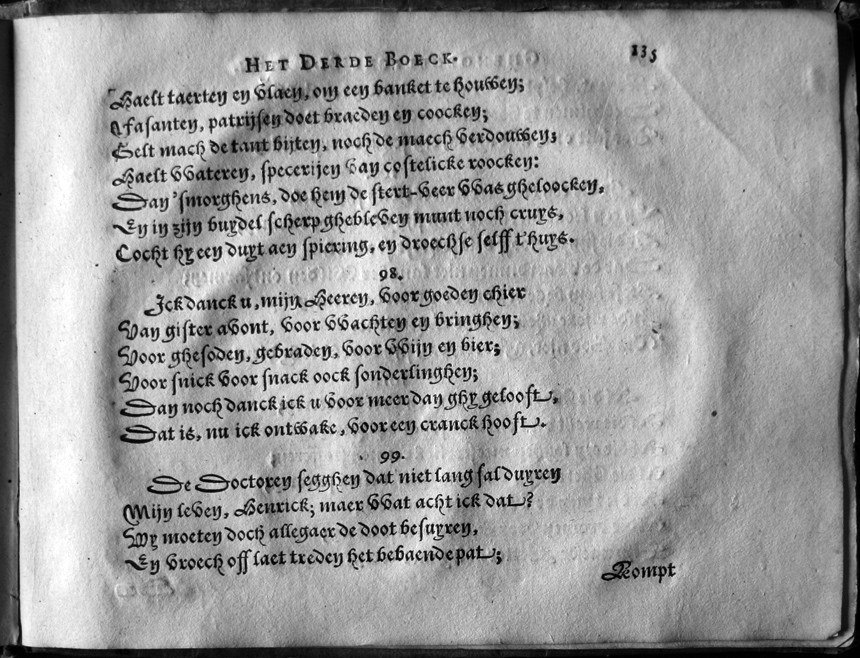 HET DERDE BOECK. 135
Haelt taerten en vlaen, om een banket te houwen;
Fasanten, patrijsen doet braeden en coocken;
Selt mach de tant bijten, noch de maech verdouwen;
Haelt wateren, specerijen van costelicke roocken:
Dan 'smorghens, doe hem de stert-veer was gheloocken,
En in zijn buydel scherp ghebleven munt noch cruys,
Cocht hy een duyt aen spiering, en droechse selff t'huys.
98.
Ick danck u, mijn Heeren, voor goeden chier
Van gister avont, voor wachten en bringhen;
Voor ghesoden, gebraden, voor wijn en bier;
Voor snick voor snack oock sonderlinghen;
Dan noch danck ick u voor meer dan ghy gelooft,
Dat is, nu ick ontwake, voor een cranck hooft.
99.
De Doctoren segghen dat niet lang sal duyren
Mijn leven, Henrick; maer wat acht ick dat?
Wy moeten doch allegaer de doot besuyren,
En vroech off laet treden het bebaende pat;
Kompt